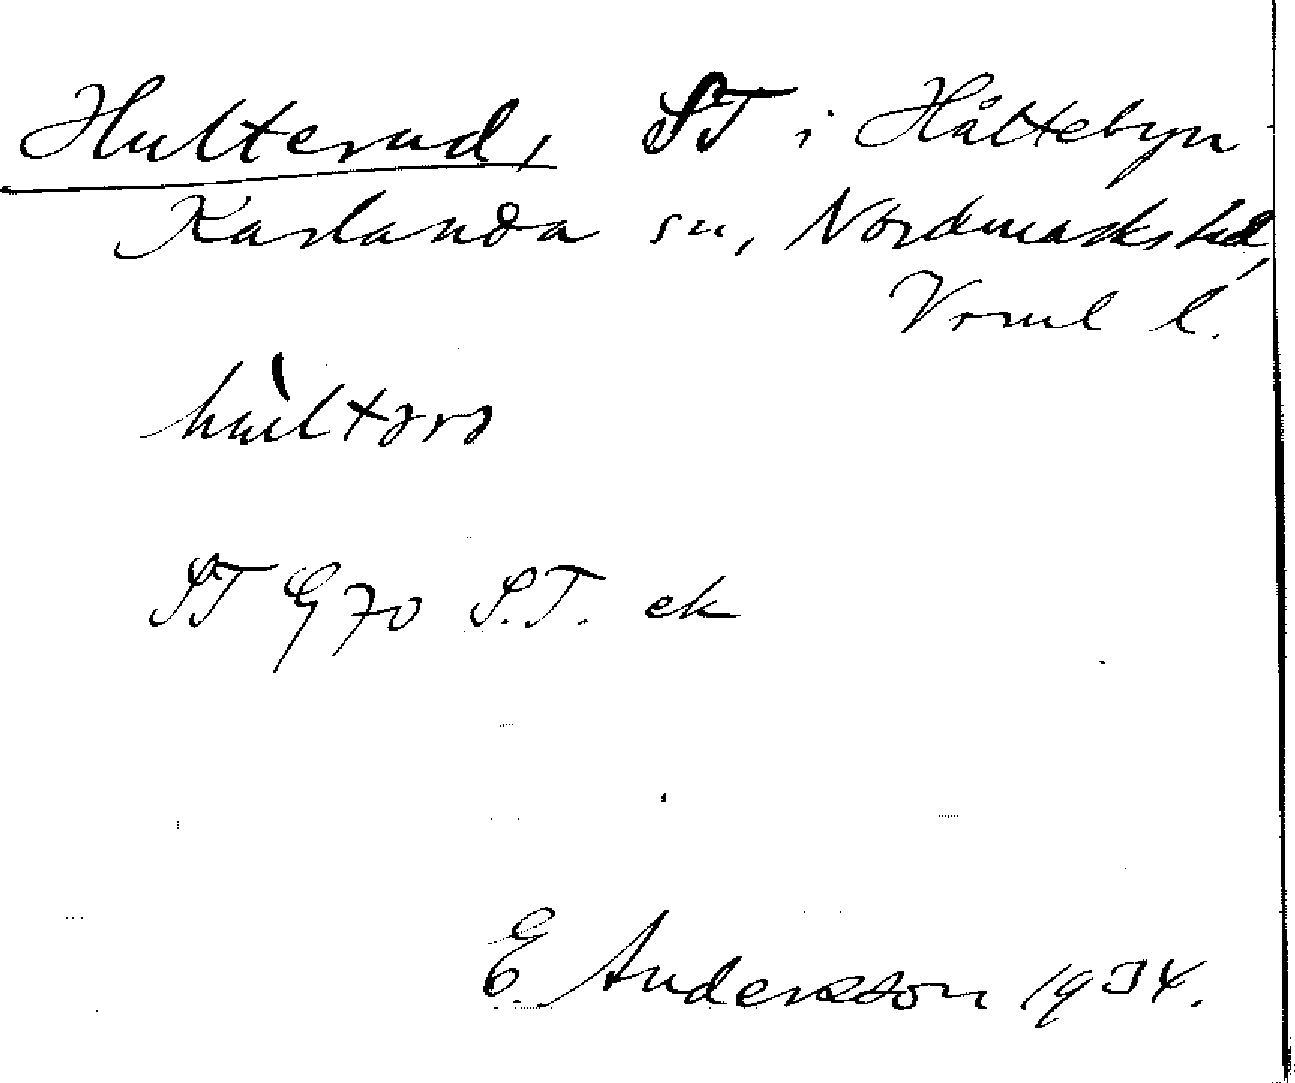 Hulterud, ST i Håltebyn
Karlanda sn, Nordmarks hd,
Vrml l.
ST G70 S.T. ek
E. Anderson 1934.